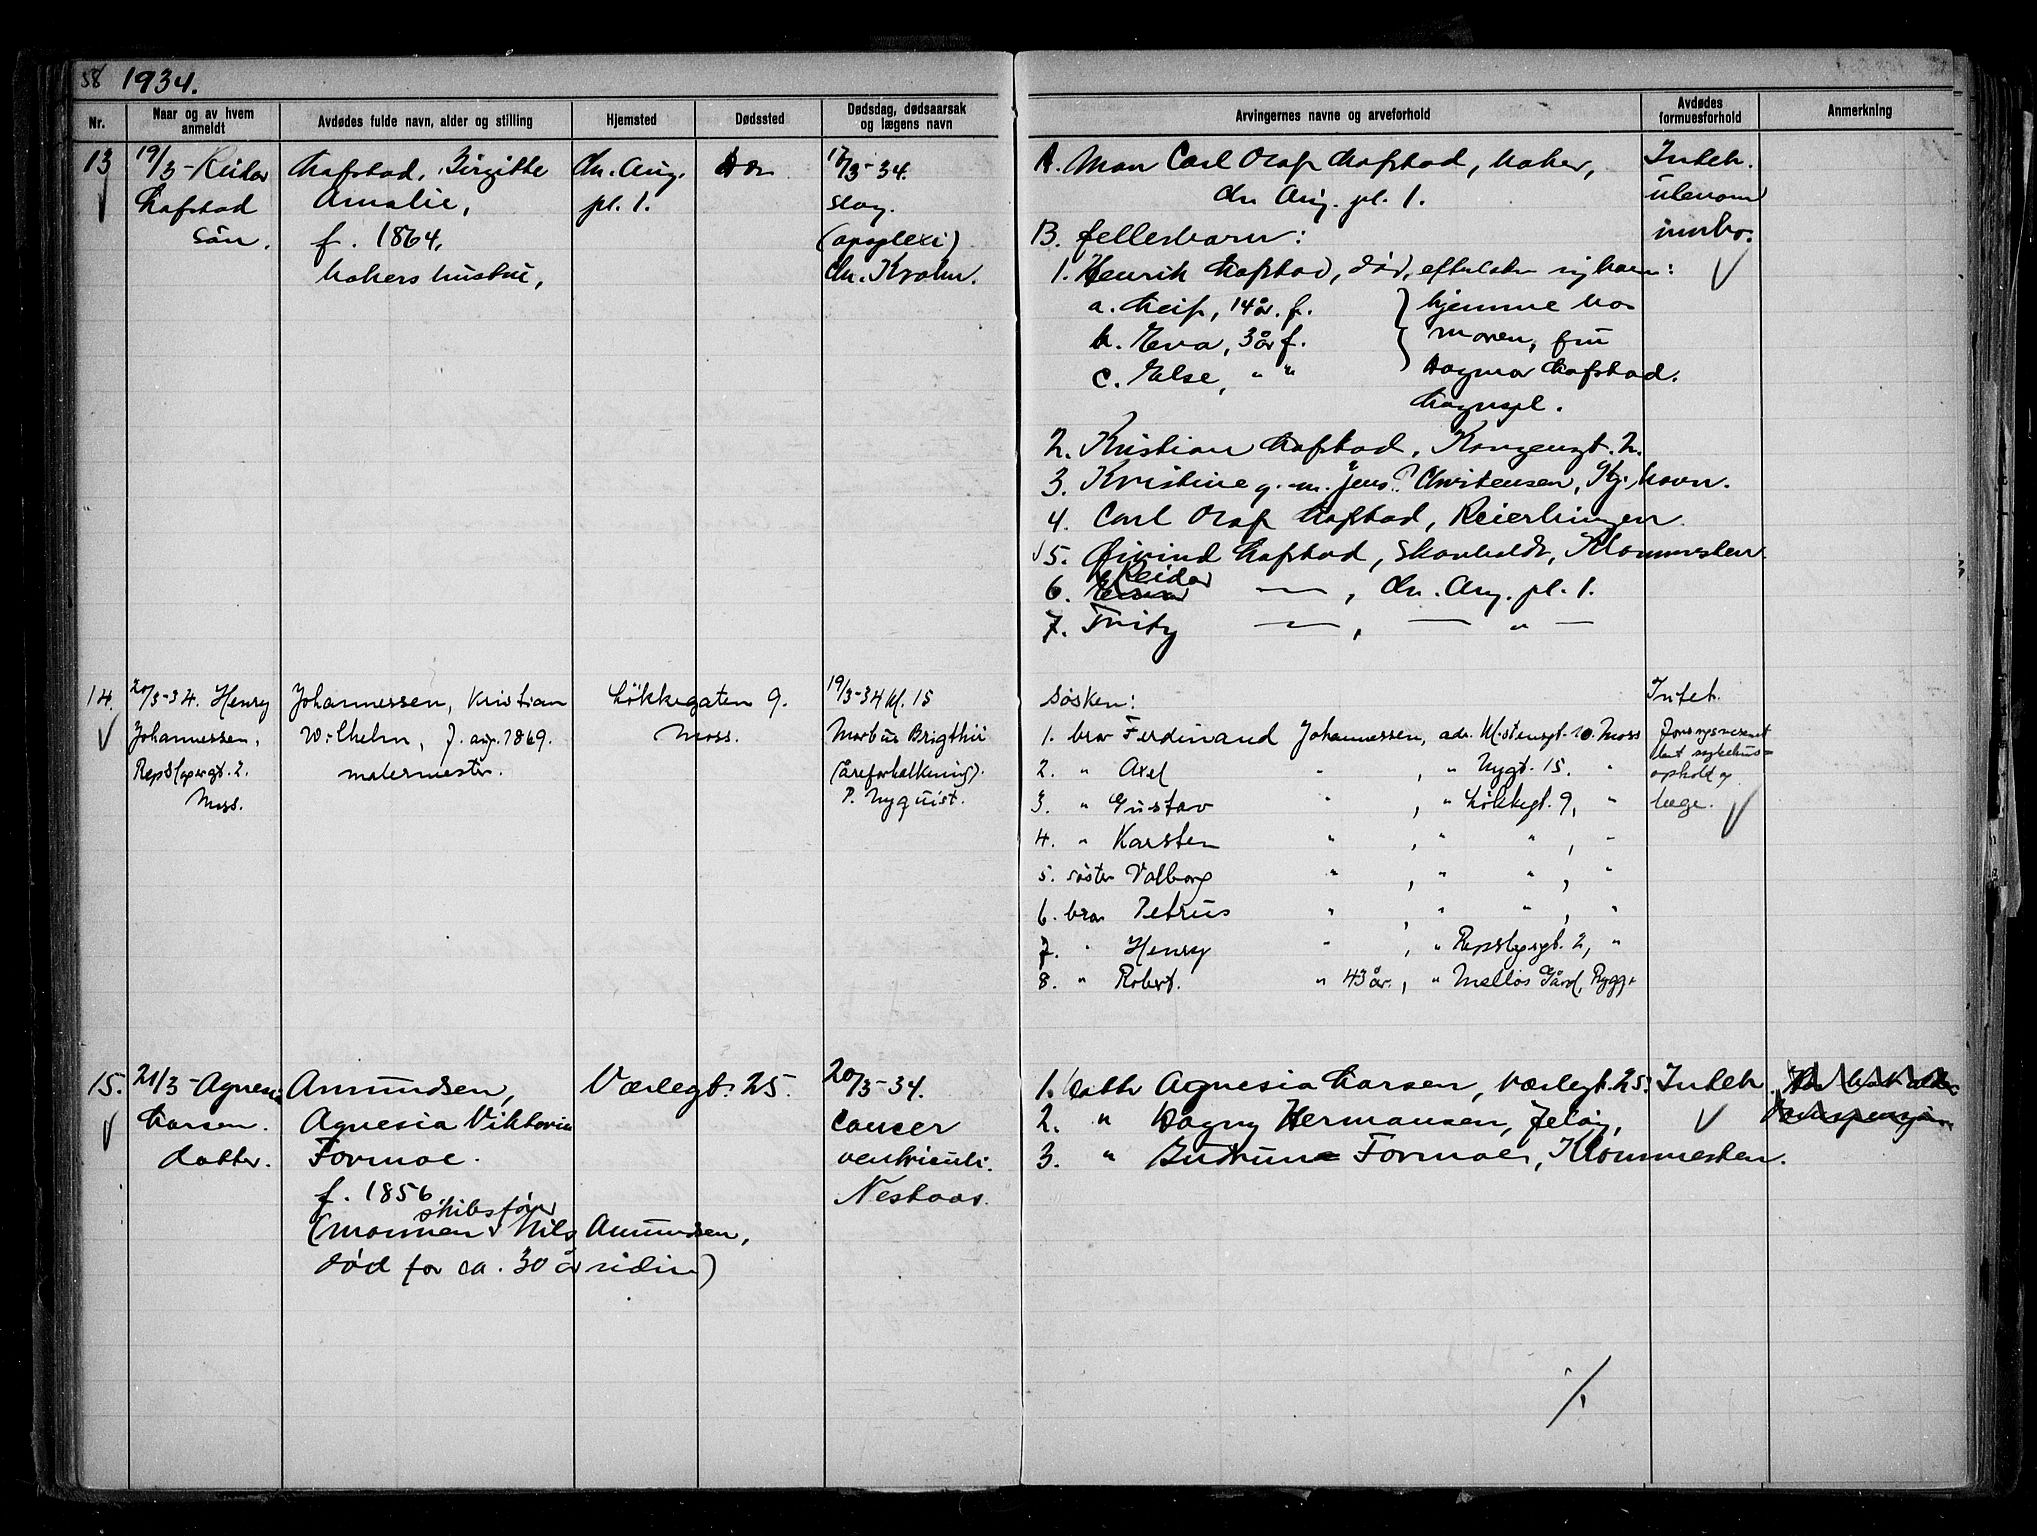 58 1934.
Nr.
Naar og av hvem anmeldt
Avdødes fulde navn, alder og stilling
Hjemsted
Dødssted
Dødsdag, dødsaarsak og lægens navn
Arvingernes navne og arveforhold
Avdødes formuesforhold
Anmerkning
13
19/3 - Reidar
Hafstad
sön.
Hafstad, Birgitte
Amalie,
f. 1864,
bakers hustru,
Chr. Aug.
pl. 1.
17/3-34.
slag.
(apoplexi)
Chr. Krohn.
A. Man Carl Olaf Hafstad, baker,
Chr Aug. pl. 1.
B. fellesbarn:
1. Henrik Hafstad, død, efterlater sig barn:
a. Leif, 14 år. f.
b. Eva, 3 år f.
c. Else, " "
hjemme hos
moren, fru
Dagmar Hafstad.
2. Kristian Hafstad, Kongensgt. 2.
3. Kristine g. m. Jens? Christensen, Kj.havn.
4. Carl Olaf Hafstad, Reierbingen.
5. Øivind Hafstad, Skavholdt, Klommesten
6. Reidar — , Chr. Aug. pl. 1.
7. Fritz — , — " —
Intet
utenom
innbo.
14.
20/3-34. Henry
Johannessen,
Repslagergt. 2.
Moss.
Johannessen, Kristian
Wilhelm, 7. aug. 1869.
malermester.
Løkkegaten 9.
Moss.
19/3-34 kl. 15
Morbus Brigthii
(åreforkalkning).
P. Nyquist.
Søsken:
1. bror Ferdinand Johannessen, adr. Kl.stensgt. 10. Moss
2. " Axel " , " Nygt. 15. "
3. " Gustav " , " Løkkegt. 9, "
4. " Karsten " , " " , "
5. søster Valborg " , " " , "
6. bror Petrus " , " " , "
7. " Henry " , " Repslagergt. 2, "
8. " Robert. " 43 år. , " Melløs Gård, Rygge
Intet.
sykehus-
ophold og
læge.
15.
21/3 - Agnesia
Larsen.
datter.
Amundsen,
Agnesia Viktoria
Formoe.
f. 1856
skibsfører
(mannen Nils Amundsen,
død for ca. 30 år siden)
Værlegt. 25.
20/3-34.
Cancer
ventriculi.
Nestaas.
1. Dattr Agnesia Larsen, Værlegt. 25.
2. " Dagny Hermansen, Jeløy,
3. " Gudrun Formoe, Klommesten.
Intet